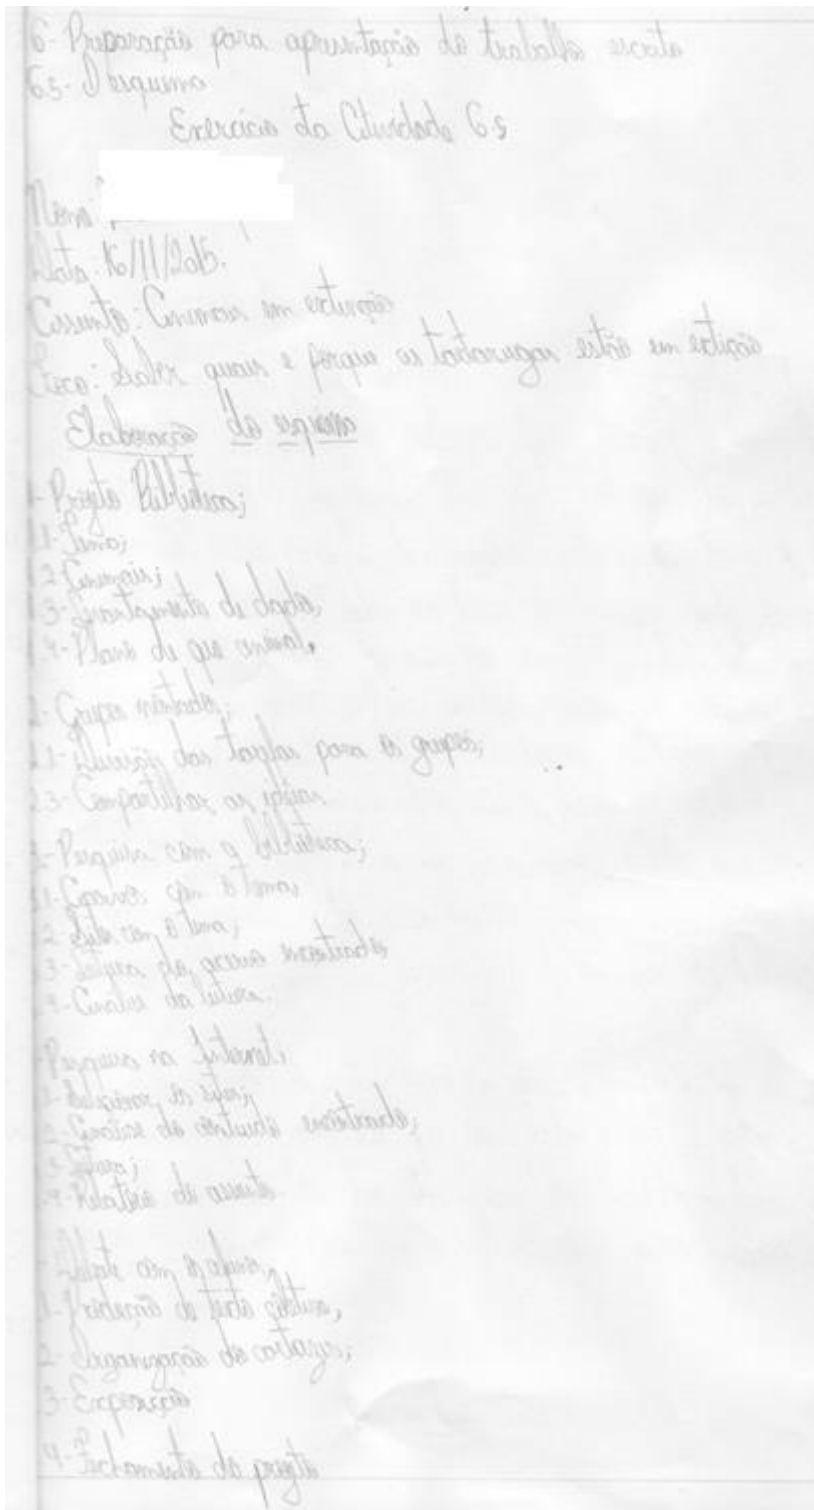 6- Preparação para apresentação do trabalho escrito
6.5- O esquema
Exercício da Atividade 6.5
Nome
Data: 16/11/2015.
Assunto: Animais em extinção
Foco: Saber quais e porque as tartarugas estão em extição
Elaboração do esquema
1- Projeto Biblioteca;
1.1- Tema;
1.3- Levantamento de dados
1.4- Plano de
2- Grupo
2.1- Divisão das tarefas para os grupos;
2.3- Compartilhar as ideias
3- Pesquisa com a biblioteca;
com o tema
2- com o tema;
3- Leitura do acervo encontrado
4- Análise da leitura.
Pesquisa na Internet;
1- Selecionar os sites;
2- Análise do conteúdo encontrado;
3- Leitura;
4- Relatório do assunto
- Debate com os alunos
1- Produção de texto coletivo;
2- Organização dos cartazes;
3- Exposição
4- Fechamento do projeto